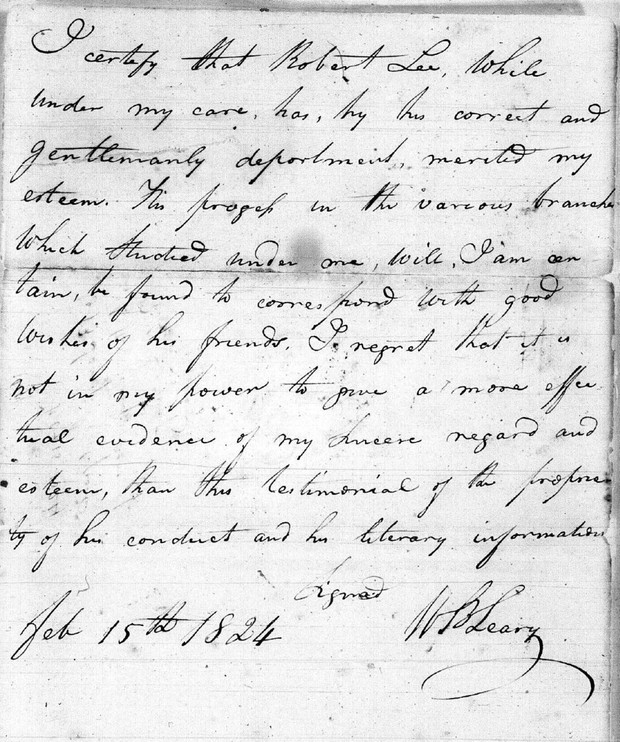 I certify that Robert Lee, While
under my care, has, by his correct and
gentlemanly deportment, merited my
esteem. His progess in the various branches
Which studied under me, will, I am cer
tain, be found to correspond with good
wishes of his friends. I regret that it is
not in my power to give a more effec
tual evidence of my sincere regard and
esteem, than this testimonial of the proprie
ty of his conduct and his literary information
Signed
Feb 15th 1824 W B Leary